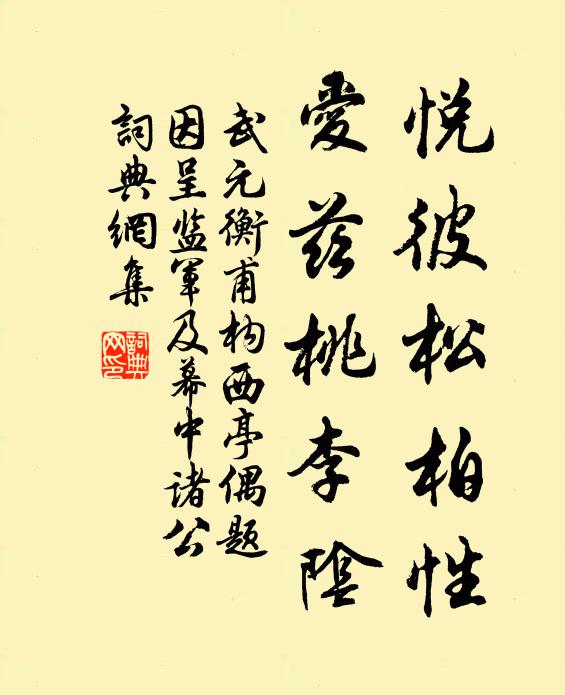 悦彼松柏性
愛茲桃李陰
武元衡甫构西亭偶题
因呈监軍及幕中诸公
詞典網集
詞典
网印